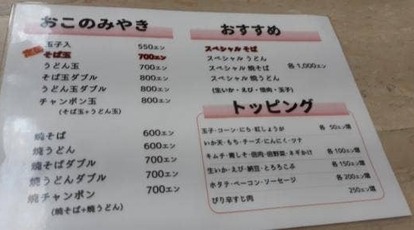 おこのみやき
玉子入 550エン
そば玉 700エン
うどん玉 700エン
そば玉ダブル 800エン
うどん玉ダブル 800エン
チャンポン玉 800エン
(そば玉+うどん玉)
焼そば 600エン
焼うどん 600エン
焼そばダブル 700エン
焼うどんダブル 700エン
焼チャンポン 700エン
(焼そば+焼うどん)
おすすめ
スペシャル そば
スペシャル うどん
スペシャル 焼そば 各1,000エン
スペシャル 焼うどん
(生いか・えび・焼肉・玉子)
トッピング
玉子・コーン・にら・紅しょうが 各 50エン増
いか天・もち・チーズ・にんにく・ツナ
キムチ・青しそ・焼肉・田野菜・ネギかけ 各100エン増
生いか・えび・納豆・とろろこぶ 各150エン増
ホタテ・ベーコン・ソーセージ 各200エン増
ぴり辛すじ肉 250エン増